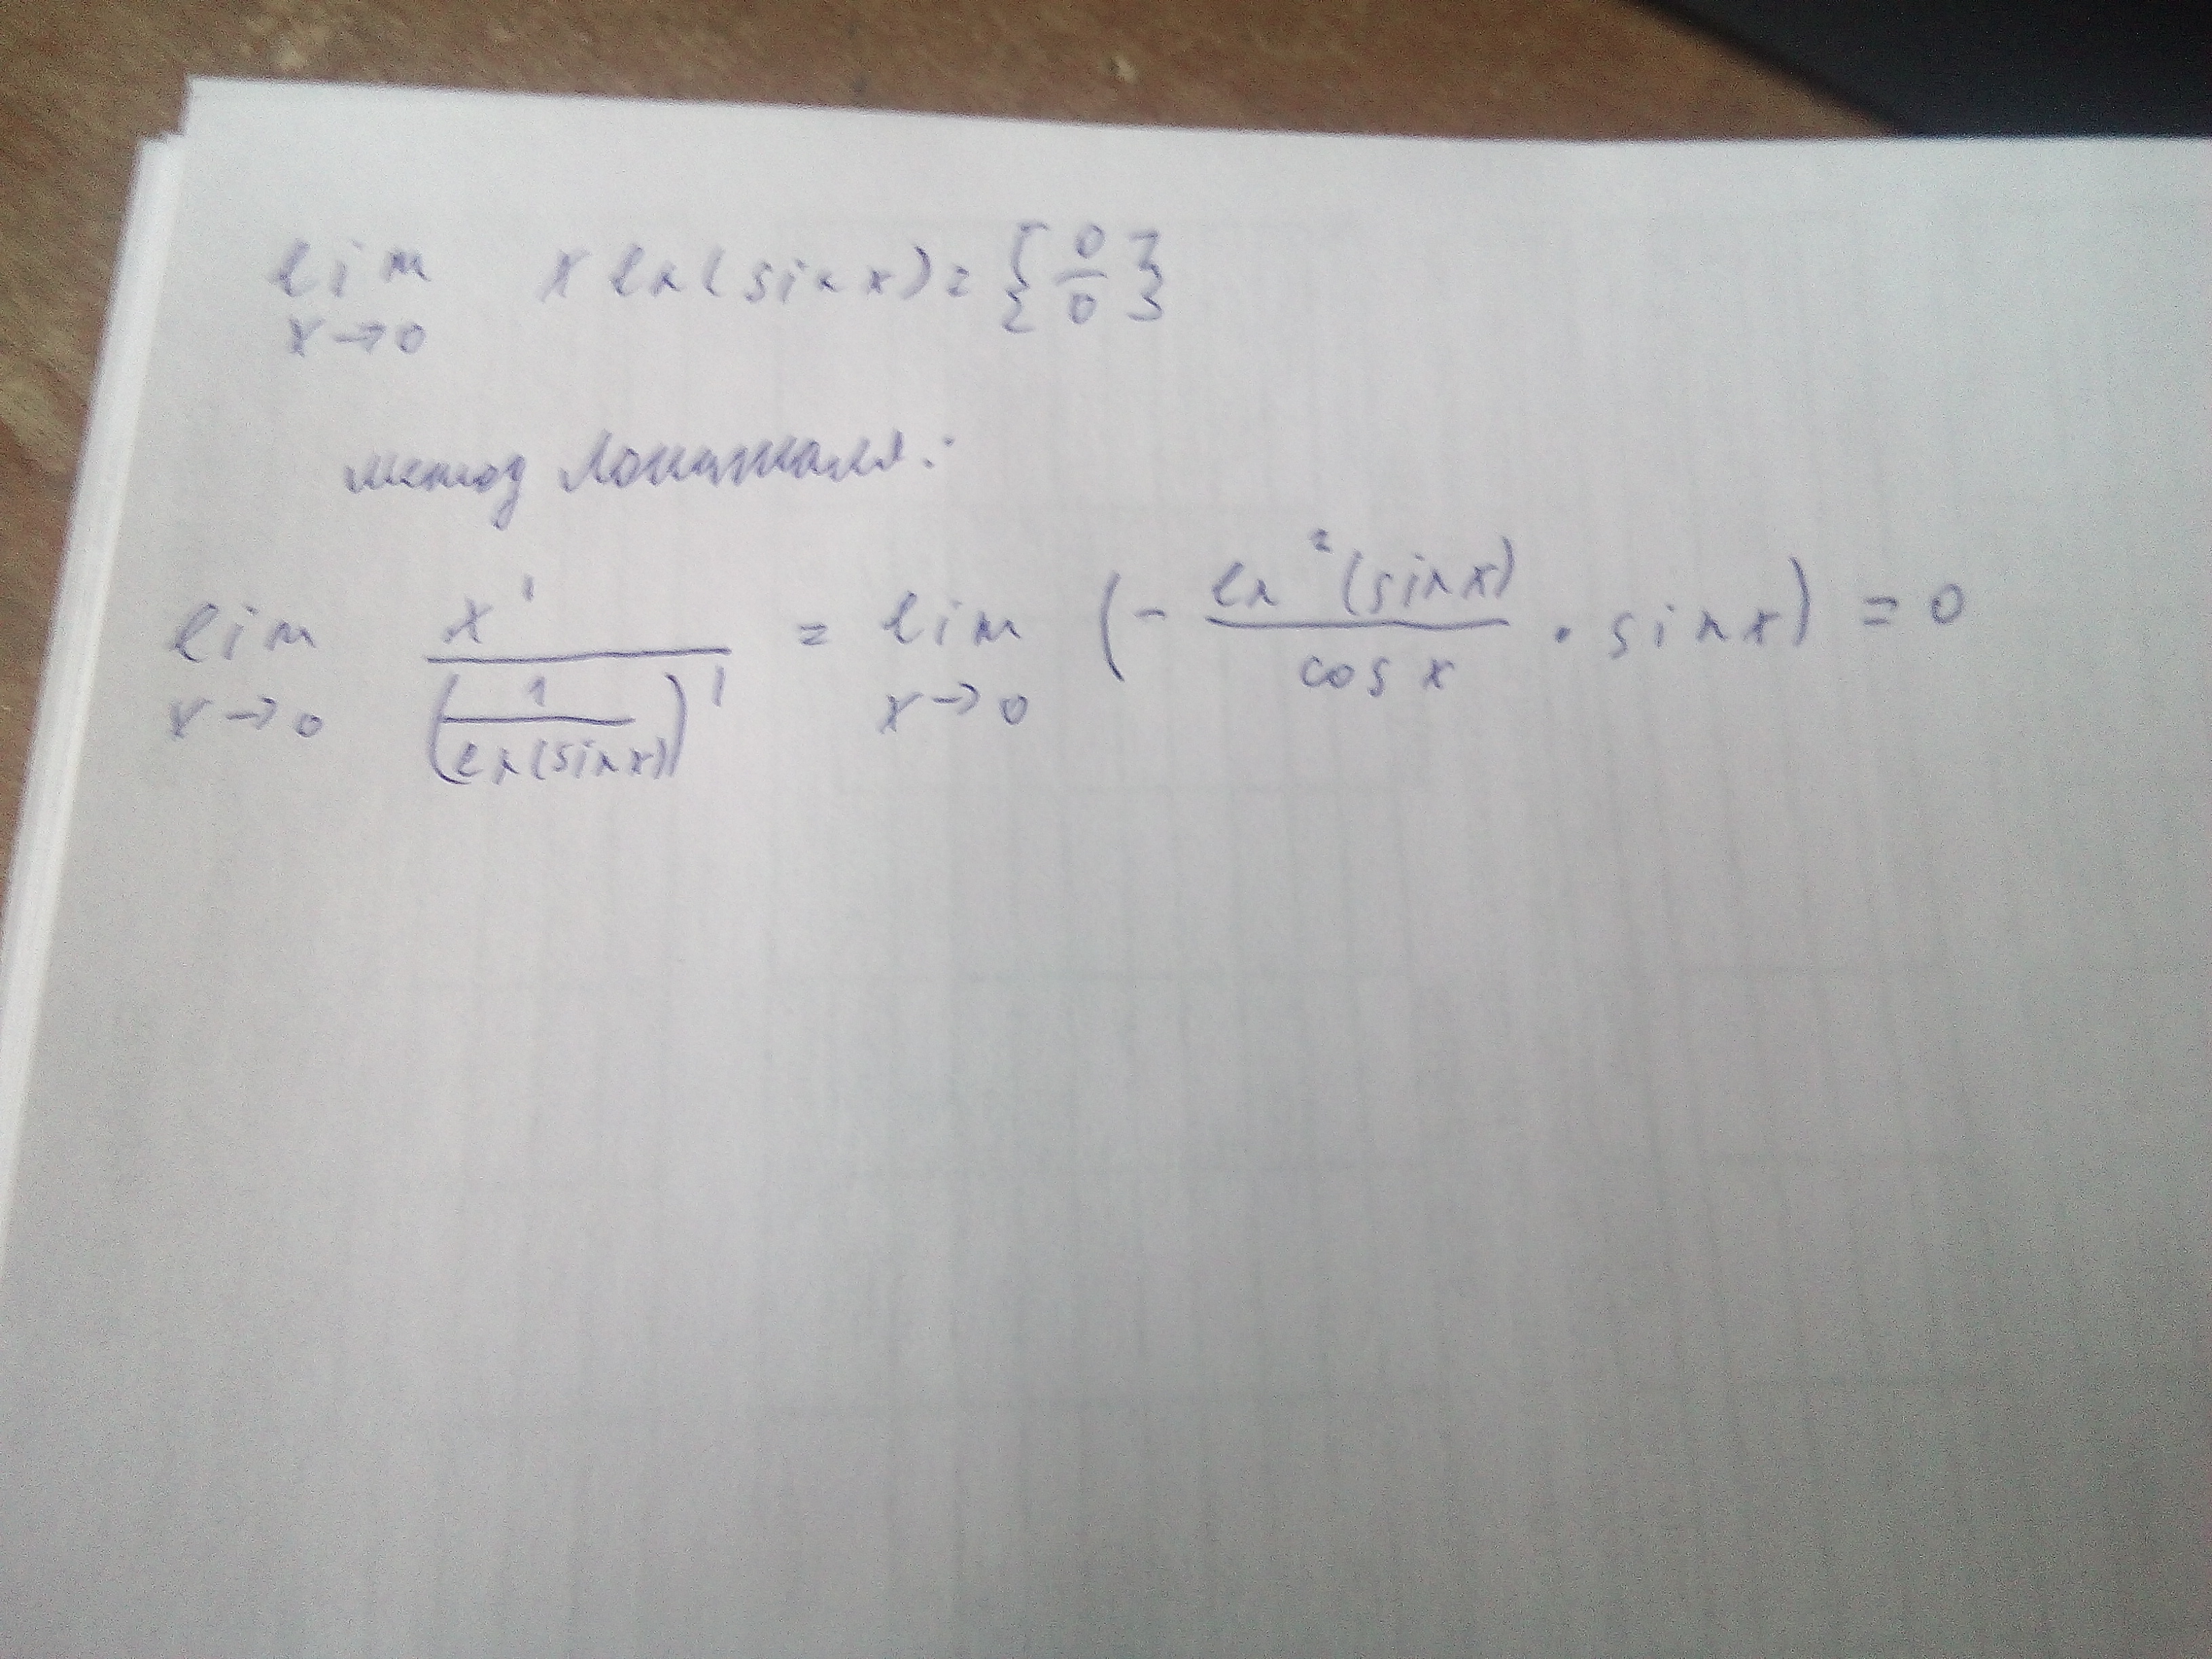 lim x ln(sinx) = {0/0}
x→0
метод Лопиталя:
lim x' / (1/ln(sinx))' = lim (- ln²(sinx)/cos x · sinx) = 0
x→0 x→0